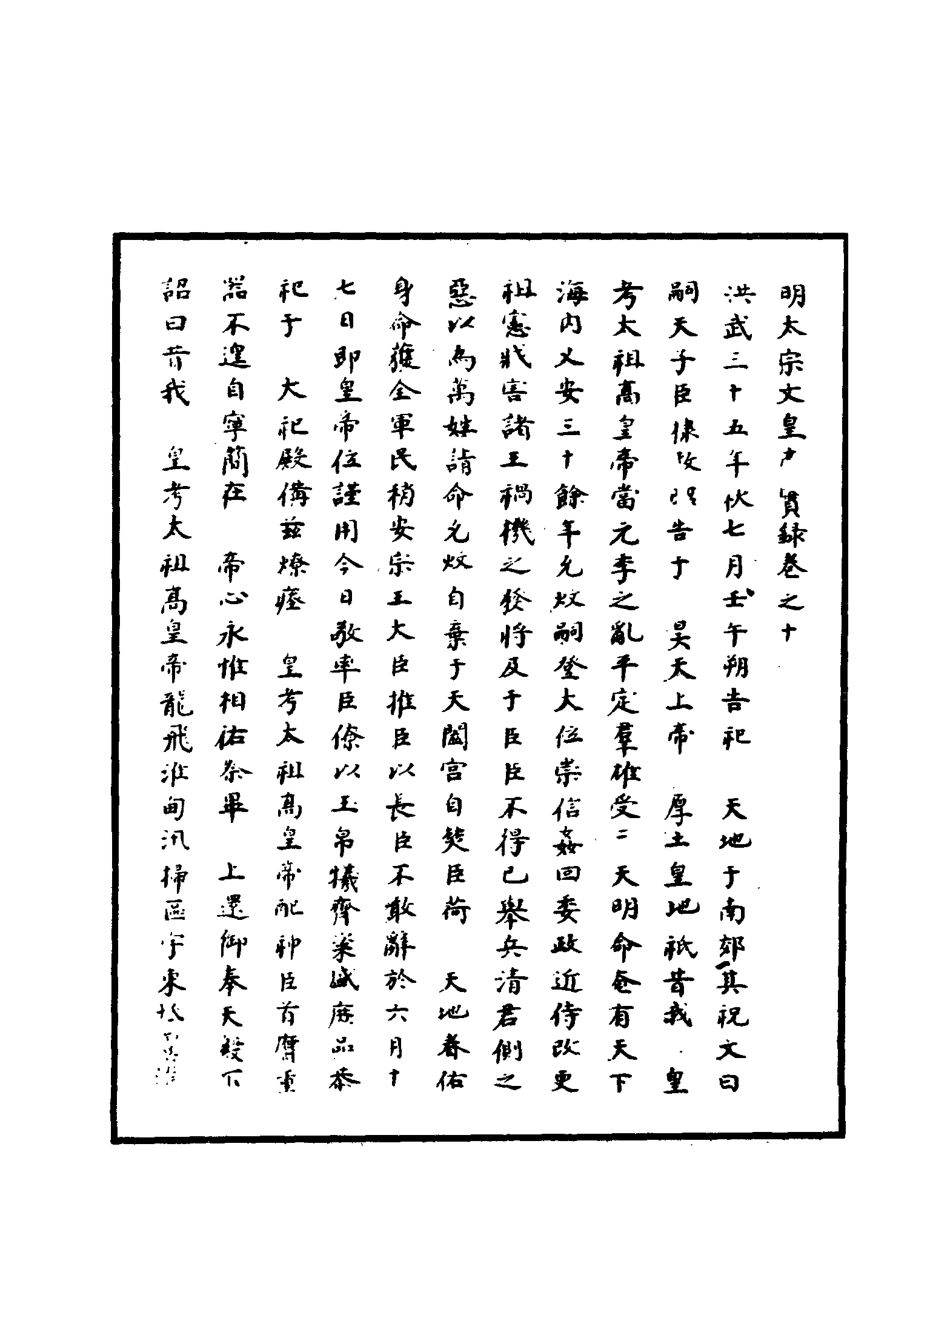 明太宗文皇 實録卷之十
洪武三十五年秋七月壬午朔告祀 天地于南郊其祝文曰
嗣天子臣棣敢 告于 昊天上帝 厚土皇地祇昔我 皇
考太祖高皇帝當元季之亂平定羣雄受二天明命奄有天下
海内乂安三十餘年允炆嗣登大位崇信姦回委政近侍改更
祖憲戕害諸王禍機之發將及于臣臣不得已舉兵清君側之
惡以為萬姓請命允炆自棄于天闔宫自焚臣荷 天地眷佑
身命獲全軍民稍安宗王大臣推臣以長臣不敢辭於六月十
七日即皇帝位謹用今日敬率臣僚以玉帛犧齊粢盛庶品恭
祀于 大祀殿備茲燎瘞 皇考太祖高皇帝配神臣首膺重
器不遑自寧簡在 帝心永惟相佑祭畢 上還御奉天殿下
詔曰昔我 皇考太祖高皇帝龍飛淮甸汛掃區宇東